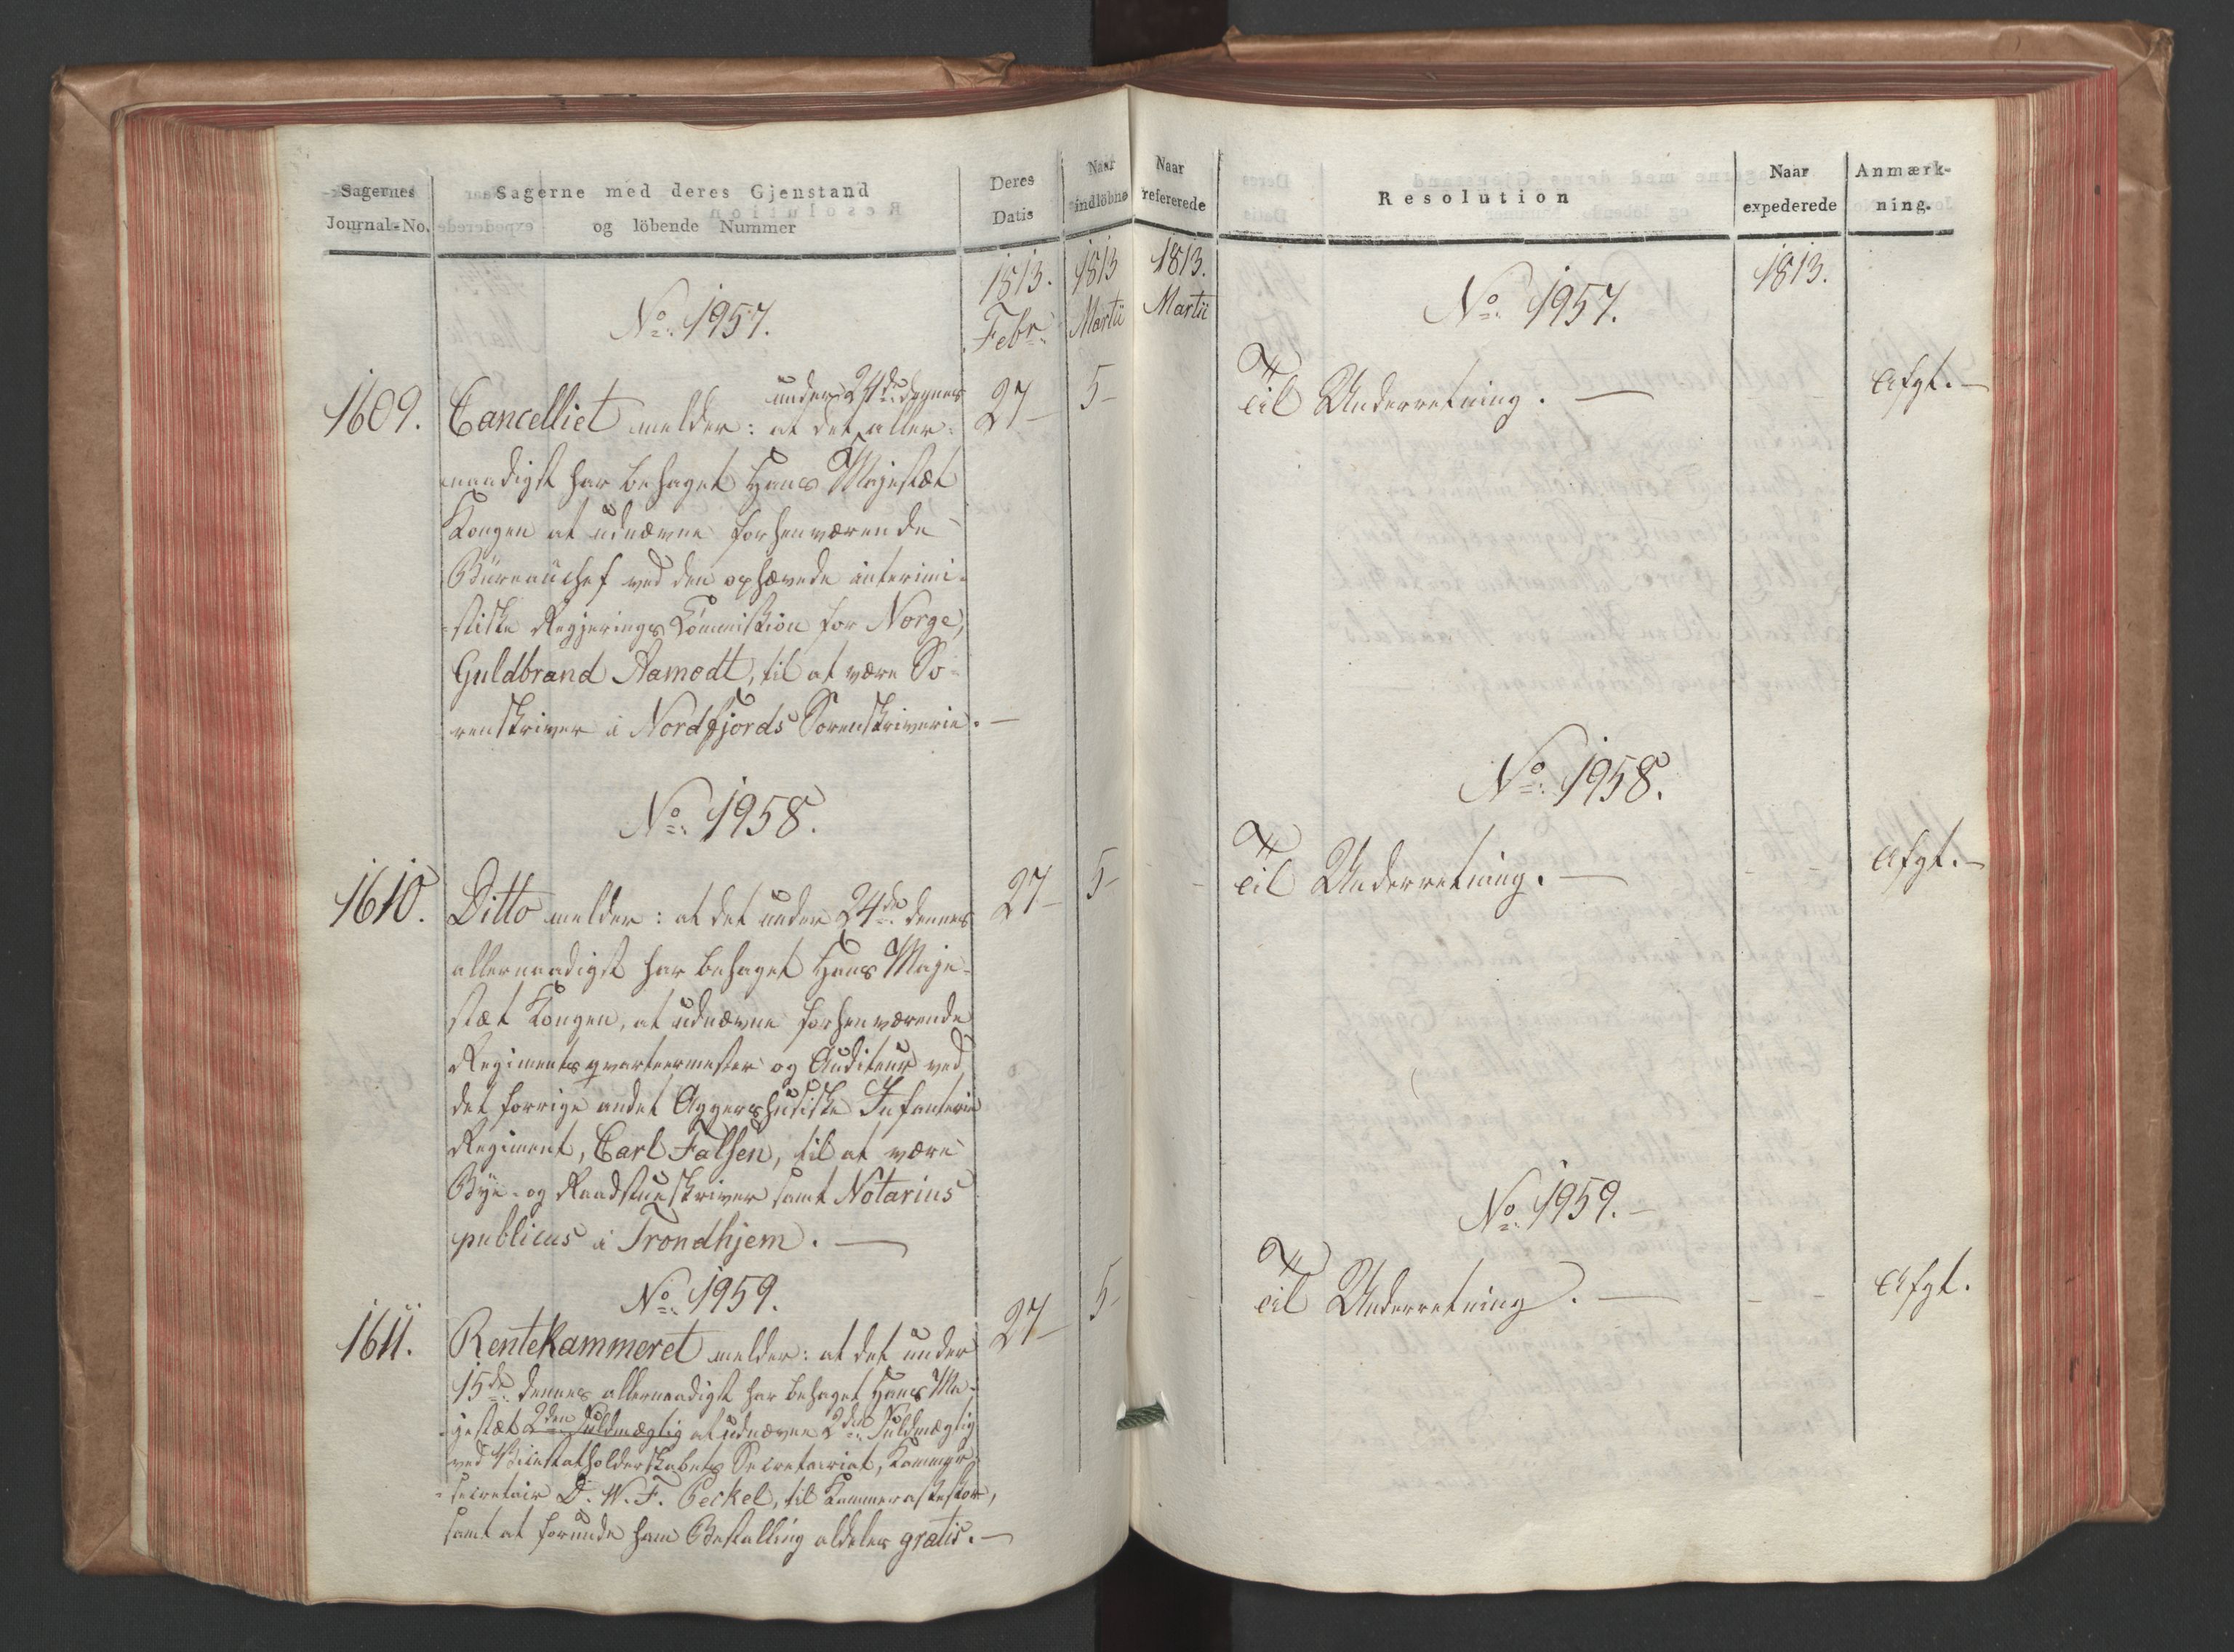 Sagernes Journal-No.
Sagerne med deres Gjenstand
og löbende Nummer
Deres
Datis
Naar
indlöbne
1813.
Febr:
1813
Martii
No: 1957.
1609. Cancelliet melder: at det under 24de dennes aller- 27 5-
naadigst har behaget Hans Majestæt
Kongen at udnævne forhenværende
Büreauchef ved den ophævede interimi-
stiske Regjerings Commission for Norge,
Guldbrand Aamodt, til at være So-
renskriver i Nordfjords Sorenskriverie.
No: 1958.
1610. Ditto melder: at det under 24de dennes 27 5-
allernaadigst har behaget Hans Maje-
stæt Kongen, at udnævne forhenværende
Regimentsqvarteermester og Auditeur ved
det forrige andet Aggershusiske Infanterie
Regiment, Carl Falsen, til at være
Bye- og Raadstueskriver samt Notarius
publicus i Trondhjem.
No: 1959.
1611. Rentekammeret melder: at det under 27 5-
15de dennes allernaadigst har behaget Hans Ma-
jestæt 2den Fuldmægtig at udnævne 2den Fuldmægtig
ved Vicestatholderskabets Secretariat, Kammer-
secretair D. W. F. Peckel, til Kammerassessor,
samt at forunde ham Bestalling aldeles gratis.
Naar
refererede
Resolution
Naar
expederede
Anmærk-
ning.
1813.
Martii
1813.
No: 1957.
Til Underretning. Afgt.
No: 1958.
Til Underretning. Afgt.
No: 1959.
Til Underretning. Afgt.